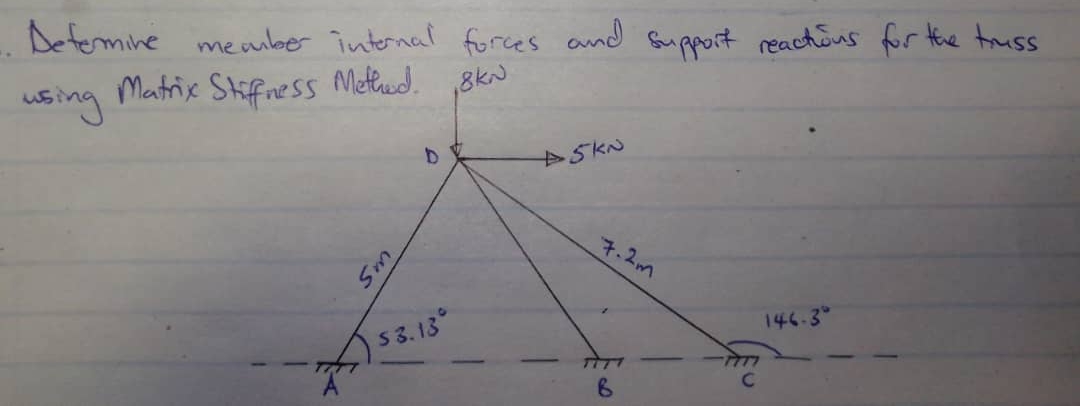 . Determine member internal forces and support reactions for the truss
using Matrix Stiffness Method.
8KN
D
5KN
5m
7.2m
53.13°
146.3°
A
B
C